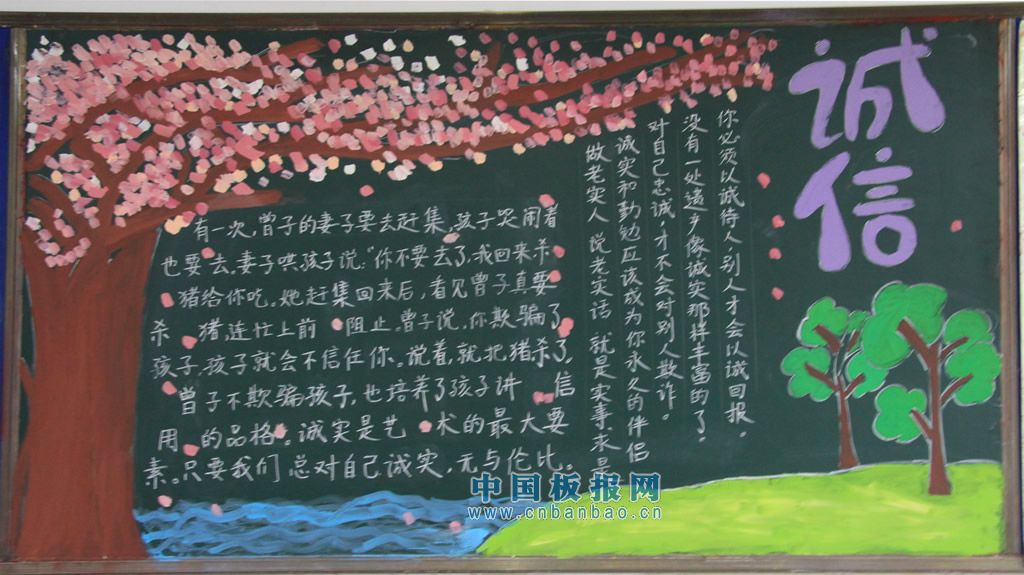 诚信
你必须以诚待人别人才会以诚回报。
没有一处遗产像诚实那样丰富的了。
对自己忠诚,才不会对别人欺诈。
诚实和勤勉应该成为你永久的伴侣
做老实人 说老实话 就是实事求是
有一次,曾子的妻子要去赶集,孩子哭闹着
也要去。妻子哄孩子说:"你不要去了,我回来杀
猪给你吃。她赶集回来后,看见曾子真要
杀 猪,连忙上前 阻止。曾子说,你欺骗了
孩子,孩子就会不信任你。说着,就把猪杀了。
曾子不欺骗孩子,也培养了孩子讲 信
用 的品格。诚实是艺 术的最大要
素。只要我们总对自己诚实,无与伦比。
中国板报网
www.cnbanbao.cn